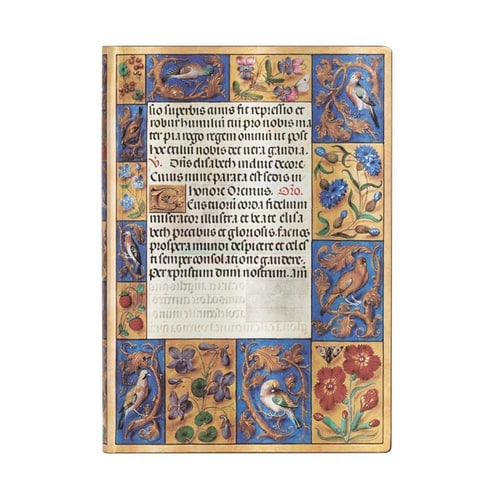 sio superbis anus fit repressio et
robur humilui tu pro nobis ma
ter pia rogo regem omniu ut post
hoc exiliu nobis det vera gaudia.
V. Diua elisabeth in diue decore.
Cuius nunc parata est sedis in
honore Oremus. Oro.
Tuorum corda fidelium
miserator illustra et beate elisa
beth precibus et gloriosis. fac nos
prospera mundi despicere et celes
ti semper consolatione gaudere.
per xpristum dnm nostrum. am